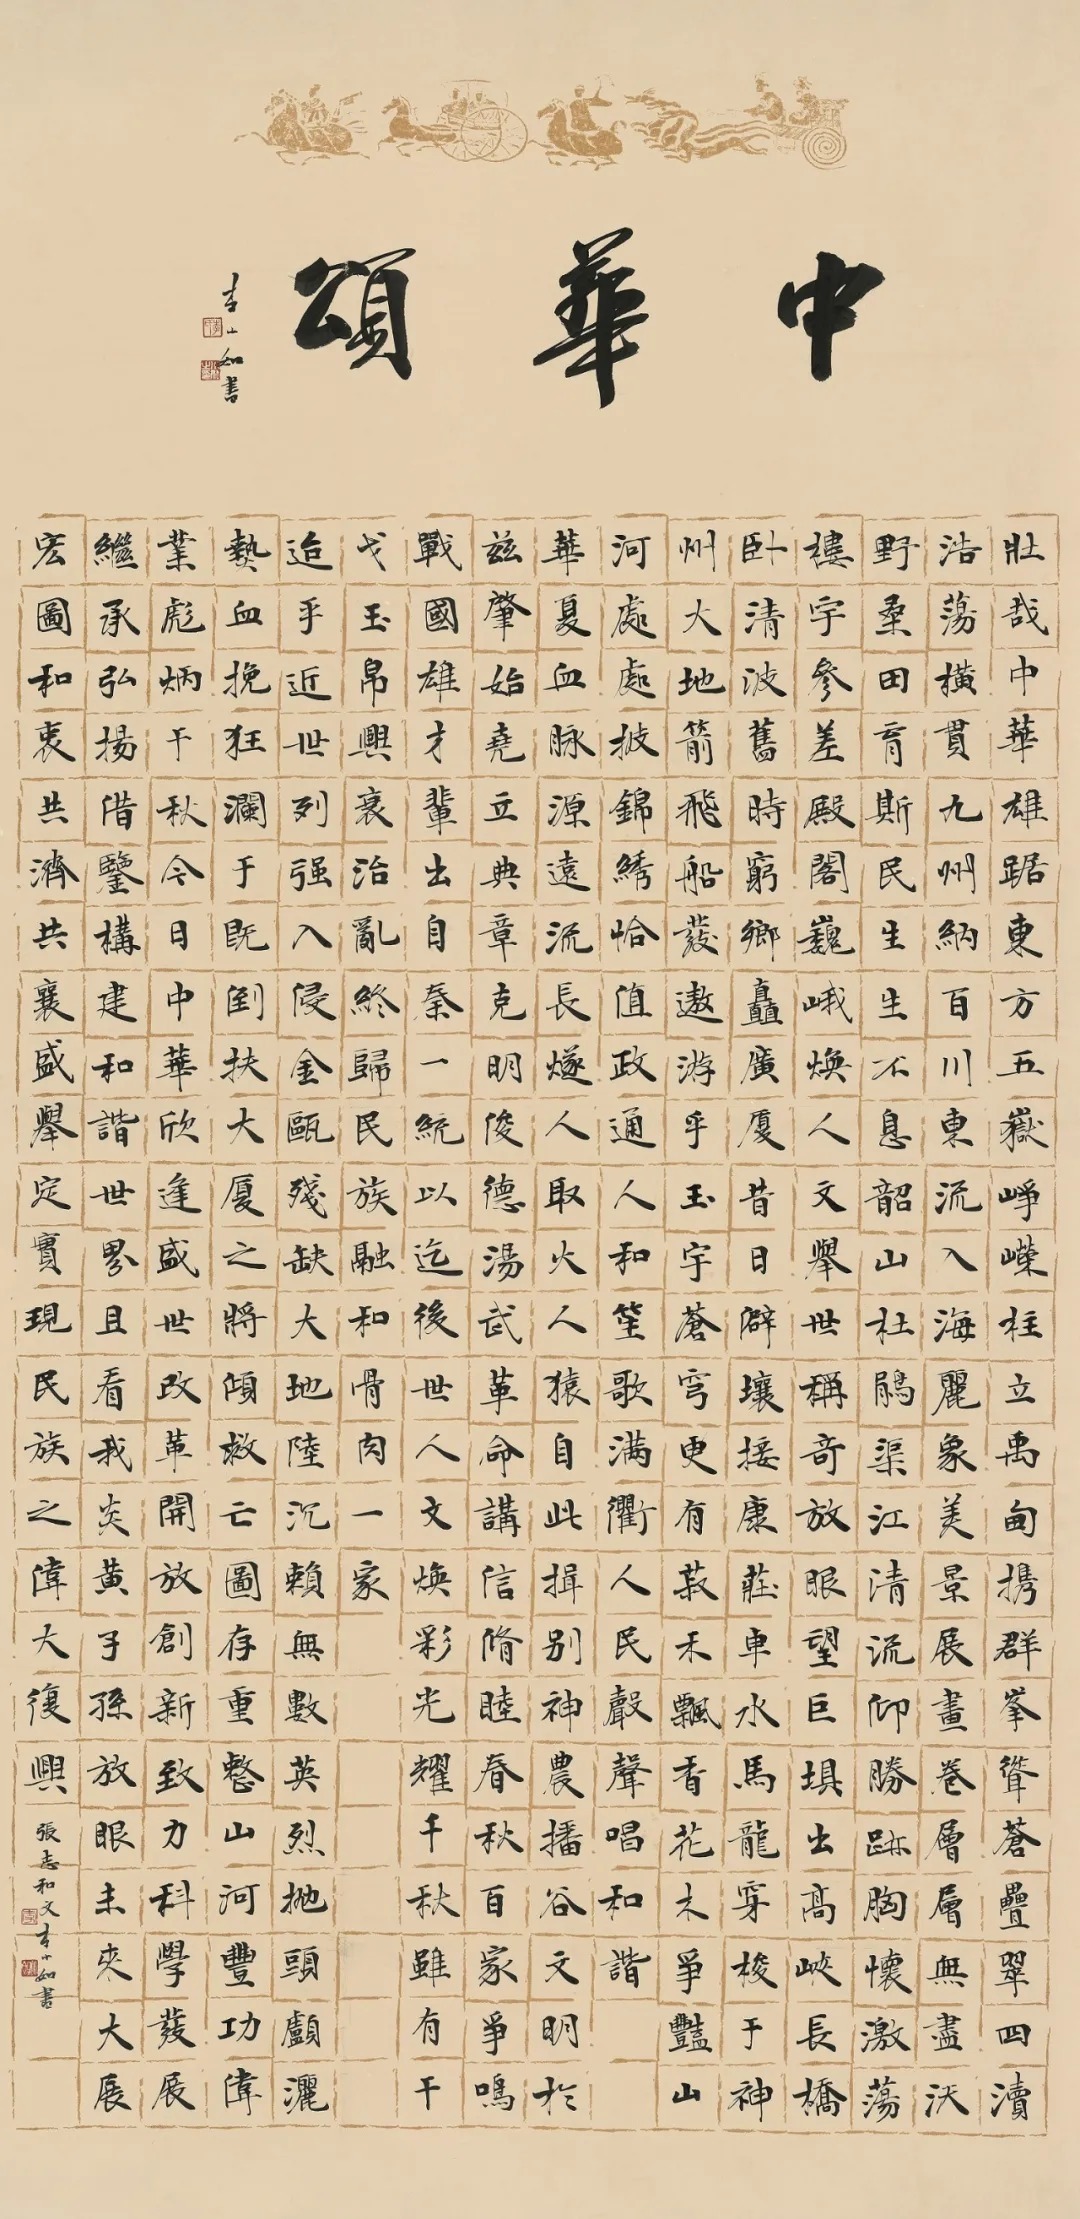 中華頌
李小如書
壯哉中華雄踞東方五嶽崢嶸柱立禹甸携群峯聳蒼疊翠四瀆
浩蕩橫貫九州納百川東流入海麗象美景展畫卷層層無盡沃
野桑田育斯民生生不息韶山杜鵑渠江清流仰勝跡胸懷激蕩
樓宇參差殿閣巍峨煥人文舉世稱奇放眼望巨埧出高峽長橋
臥清波舊時窮鄉矗廣廈昔日僻壤接康莊車水馬龍穿梭于神
州大地箭飛船發遨游乎玉宇蒼穹更有菽禾飄香花木爭豔山
河處處披錦綉恰值政通人和笙歌满衢人民聲聲唱和諧
華夏血脉源遠流長燧人取火人猿自此揖别神農播谷文明於
兹肇始堯立典章克明俊德湯武革命講信脩睦春秋百家爭鳴
戰國雄才輩出自秦一統以迄後世人文煥彩光耀千秋雖有干
戈玉帛興衰治亂終歸民族融和骨肉一家
迨乎近世列强入侵金甌殘缺大地陸沉賴無數英烈抛頭顱灑
熱血挽狂瀾于既倒扶大廈之將傾救亡圖存重整山河豐功偉
業彪炳千秋今日中華欣逢盛世改革開放創新致力科學發展
繼承弘揚借鑒構建和諧世界且看我炎黄子孫放眼未來大展
宏圖和衷共濟共襄盛舉定實現民族之偉大復興
張志和文李小如書